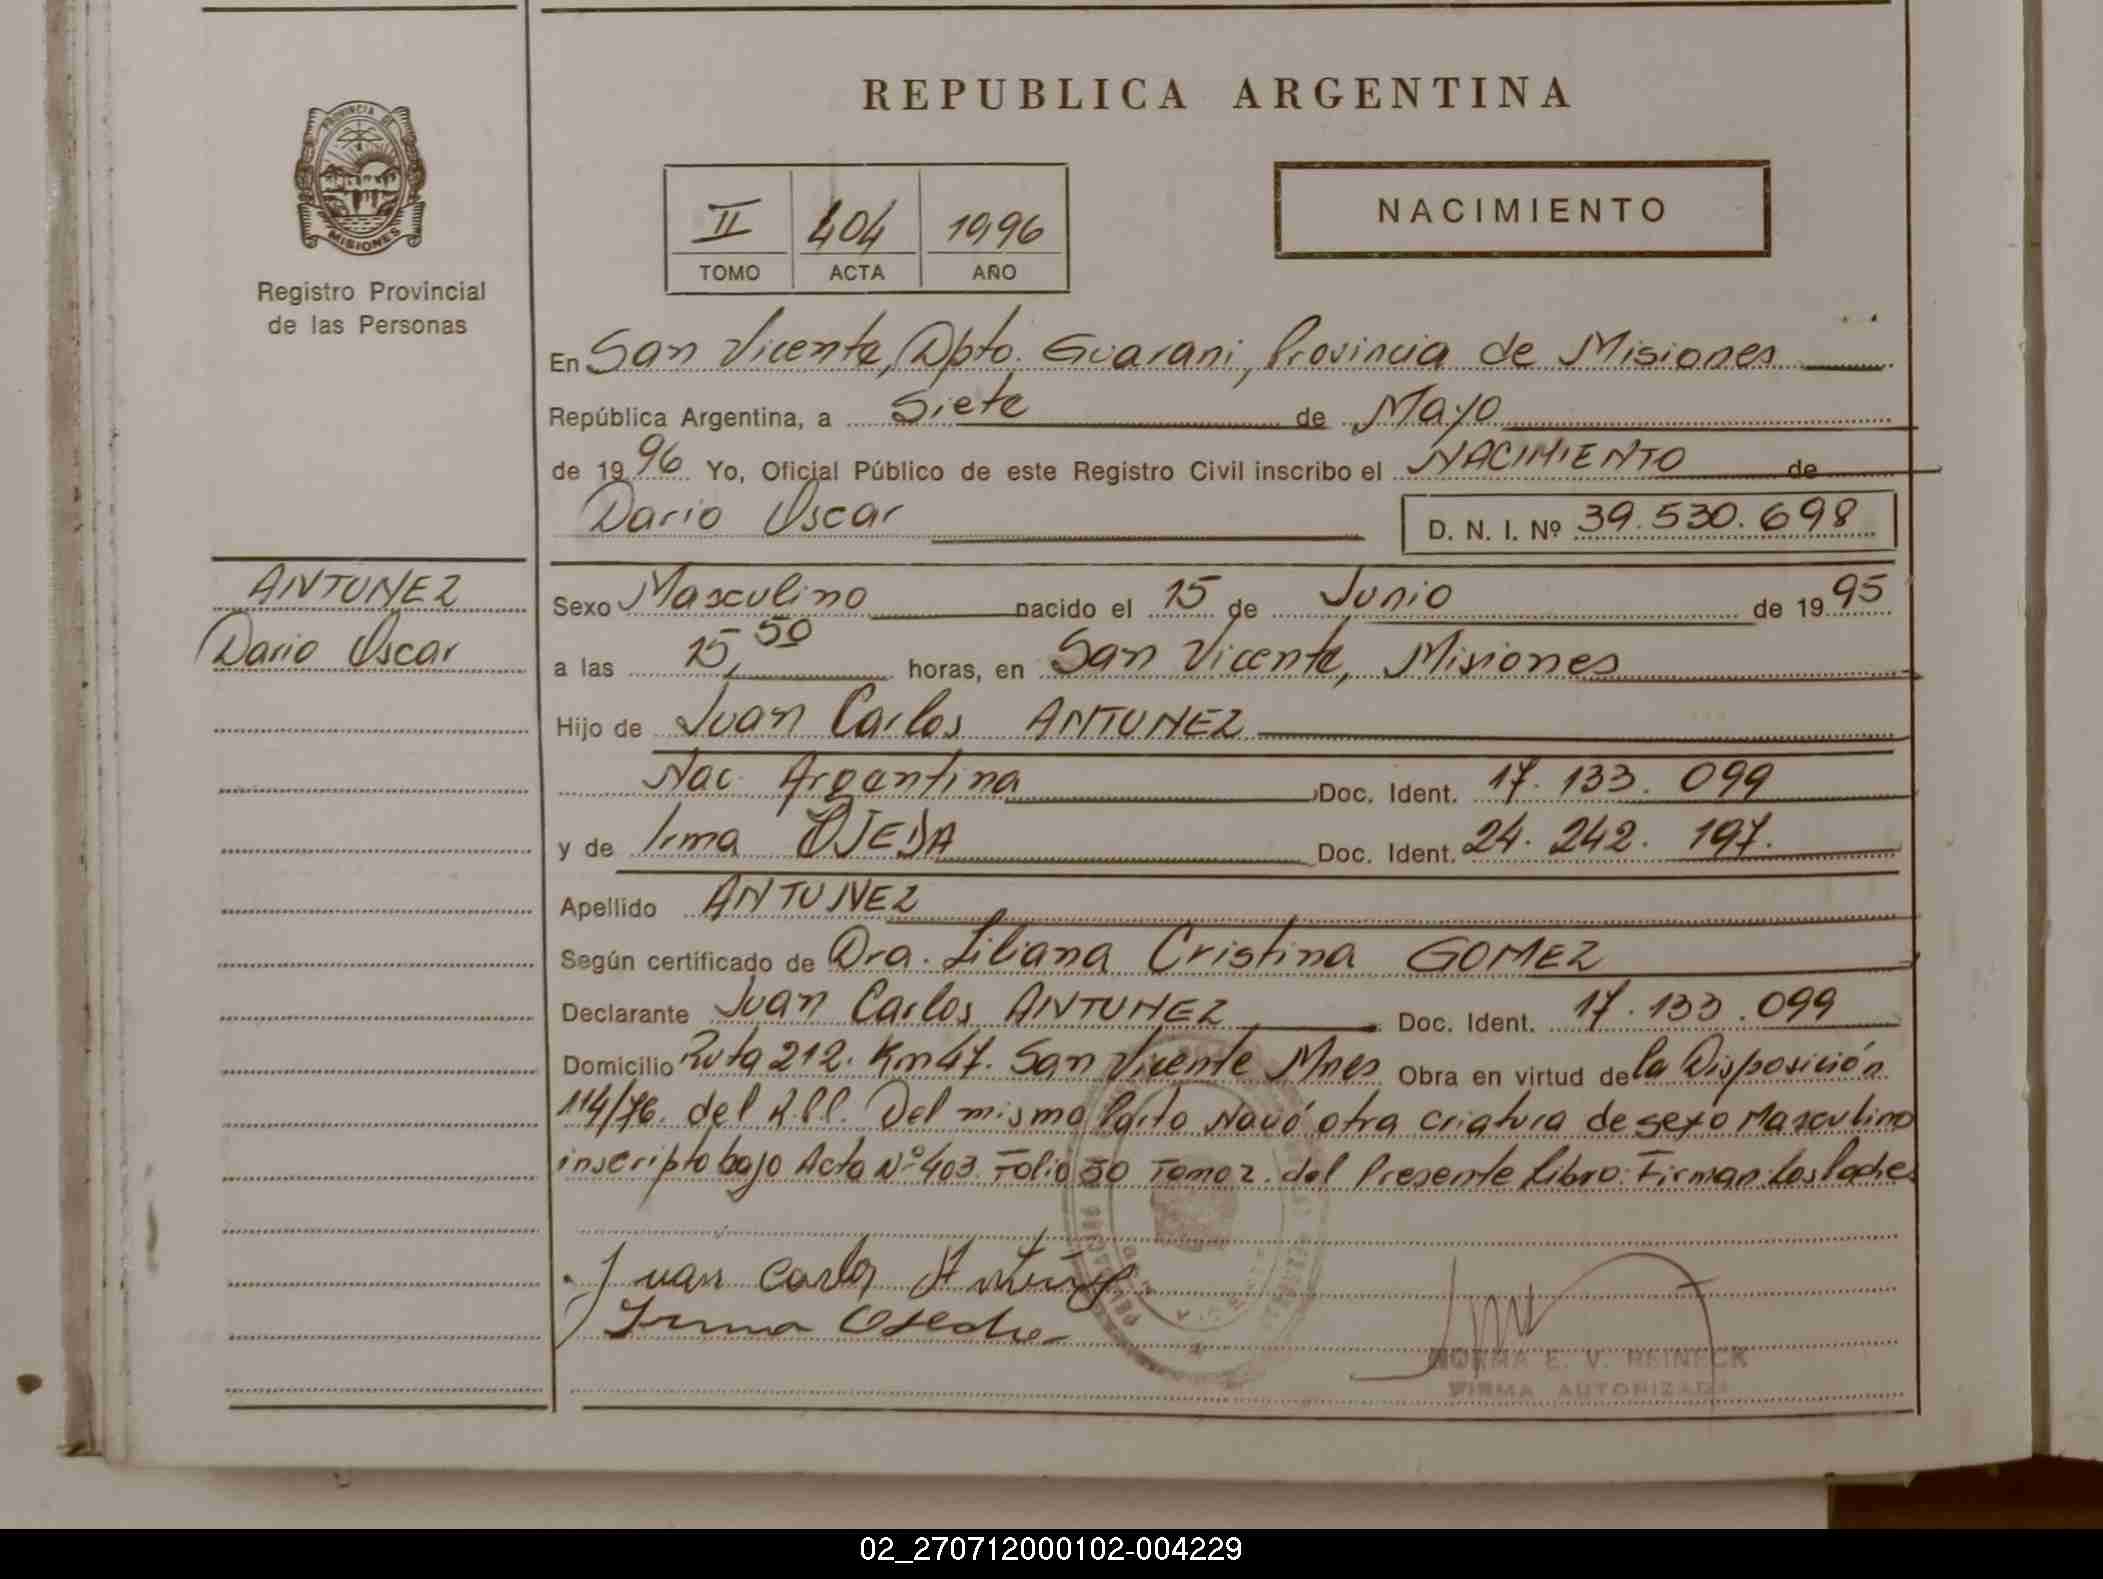 REPUBLICA ARGENTINA
PROVINCIA DE
MISIONES
Registro Provincial
de las Personas
II 404 1996
TOMO ACTA AÑO
NACIMIENTO
En San Vicente, Dpto. Guarani, Provincia de Misiones
República Argentina, a Siete de Mayo
de 1996 Yo, Oficial Público de este Registro Civil inscribo el NACIMIENTO de
Dario Oscar D. N. I. Nº 39.530.698
ANTUNEZ
Dario Oscar
Sexo Masculino nacido el 15 de Junio de 1995
a las 15,50 horas, en San Vicente, Misiones
Hijo de Juan Carlos ANTUNEZ
Nac. Argentina Doc. Ident. 17.133.099
y de Irma OJEDA Doc. Ident. 24.242.197.
Apellido ANTUNEZ
Según certificado de Dra. Liliana Cristina GOMEZ
Declarante Juan Carlos ANTUNEZ Doc. Ident. 17.133.099
Domicilio Ruta 212. Km 47. San Vicente Mnes Obra en virtud de la Disposición
114/76. del Del mismo Parto Nació otra criatura de sexo Masculino
inscripto bajo Acta Nº 403. Folio 50 Tomo 2. del Presente Libro: Firman: Los Padres
Juan Carlos Antúnez
Irma Ojeda
NORMA E. V. REINECK
FIRMA AUTORIZADA
02_270712000102-004229